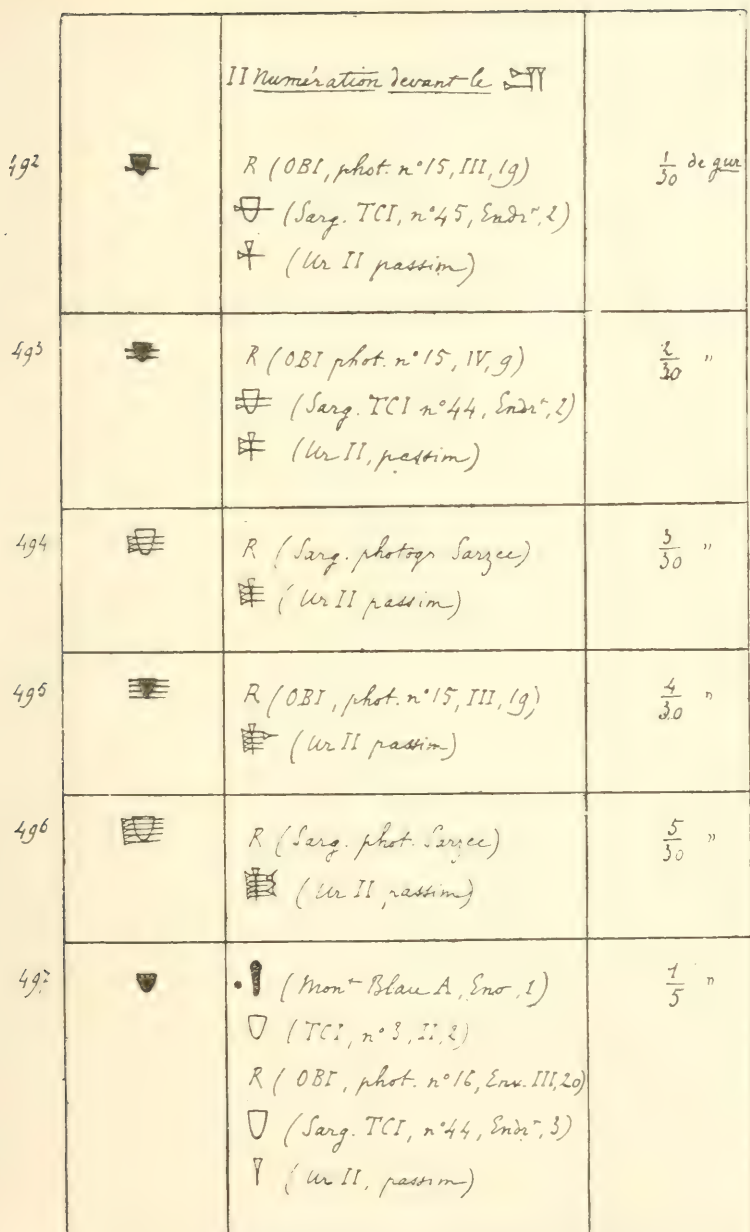 II Numération devant le
492 R (OBI, phot. n° 15, III, 19) 1/30 de gur
(Sarg. TCI, n° 45, Endrt, 2)
(Ur II passim)
493 R (OBI phot. n° 15, IV, 9) 2/30 "
(Sarg. TCI n° 44, Endrt, 2)
(Ur II, passim)
494 R (Sarg. photogr Sarzec) 3/30 "
(Ur II passim)
495 R (OBI, phot. n° 15, III, 19) 4/30 "
(Ur II passim)
496 R (Sarg. phot. Sarzec) 5/30 "
(Ur II passim)
497 (Mont Blau A, 1) 1/5 "
(TCI, n° 3, II, 2)
R (OBI, phot. n° 16, Env. III, 20)
(Sarg. TCI, n° 44, Endrt, 3)
(Ur II, passim)